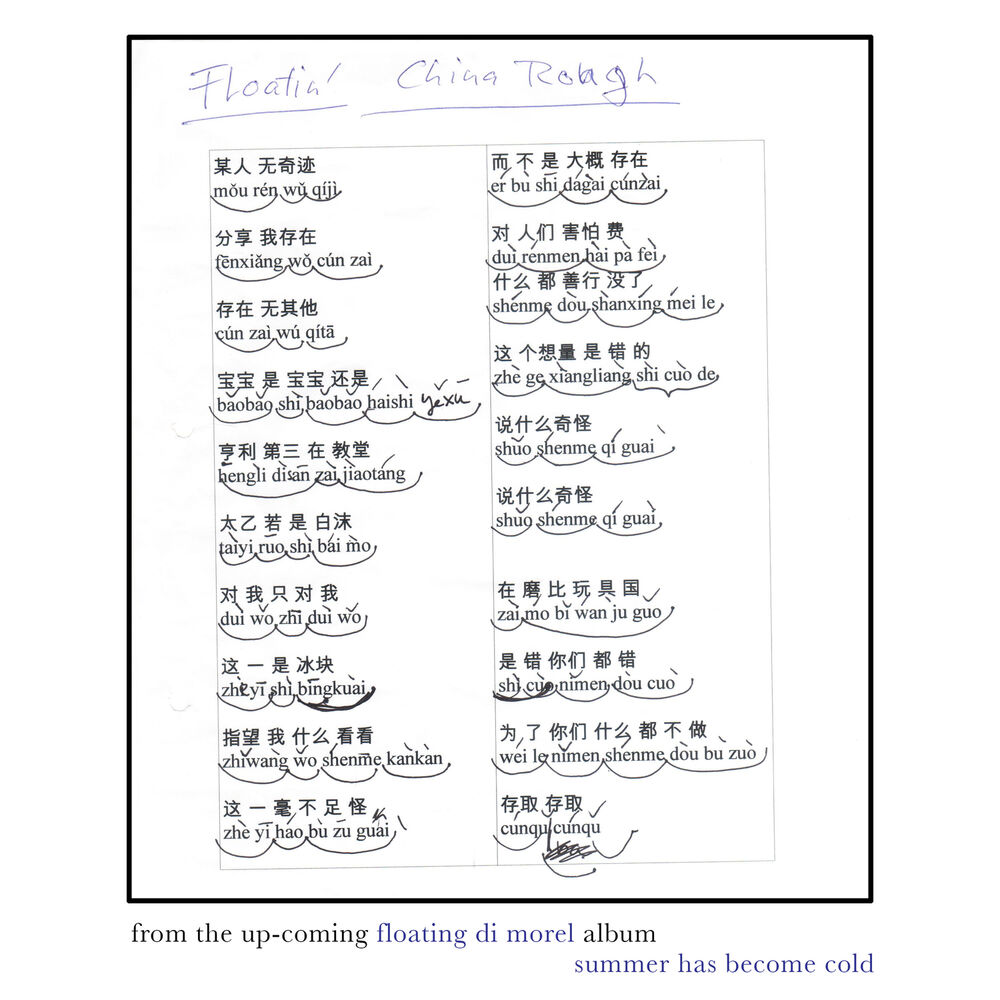 Floatin' China Rough
某人 无奇迹
mǒu rén wǔ qíjì
分享 我存在
fēnxiǎng wǒ cún zaì
存在 无其他
cún zaì wú qítā
宝宝 是 宝宝 还是
baobǎo shì baobao háishì yěxū
亨利 第三 在 教堂
hengli dìsān zaì jiàotáng
太乙 若 是 白沫
taìyi ruo shì bái mo
对 我 只 对 我
duì wǒ zhī duì wǒ
这 一 是 冰块
zhè yī shì bīngkuài
指望 我 什么 看看
zhǐwàng wǒ shénme kànkàn
这 一 毫 不 足 怪
zhè yī háo bù zū guài
而 不 是 大概 存在
ér bù shī dágaì cúnzaì
对 人们 害怕 费
duì rénmen hài pà feì
什么 都 善行 没了
shénme dòu shànxíng méi le
这 个想量 是 错 的
zhè ge xiàngliàng shì cuò de
说什么奇怪
shuǒ shénme qí guaì
说什么奇怪
shuǒ shénme qí guaì
在 磨 比 玩 具 国
zaì mó bǐ wán ju guo
是 错 你们 都 错
shì cùo nǐmen dòu cuò
为 了 你们 什么 都 不 做
wéi le nǐmen shénme dòu bù zuò
存取 存取
cúnqu cúnqu
from the up-coming floating di morel album
summer has become cold